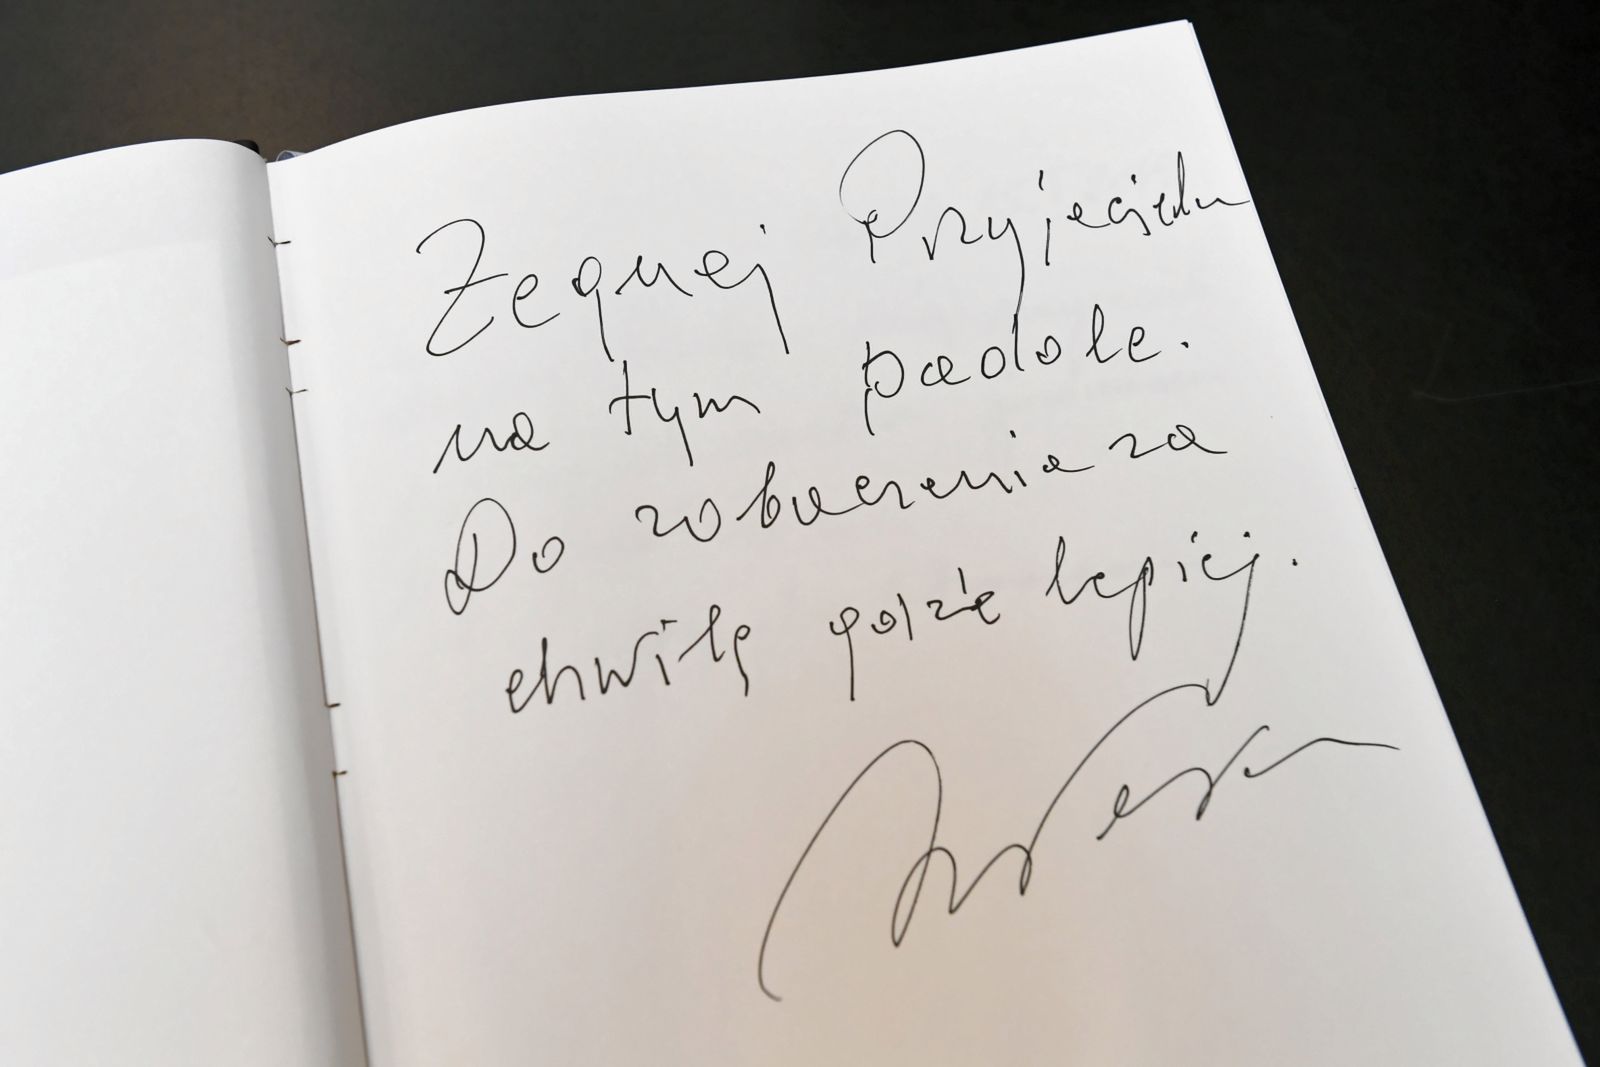 Żegnaj Przyjacielu
na tym padole.
Do zobaczenia za
chwilę gdzie lepiej.